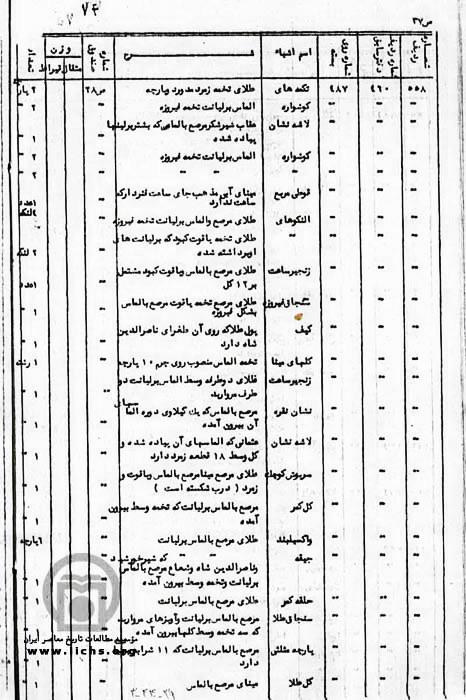 ۷۴
شماره ردیف
شماره ردیف دفتر سابق
شماره روی بسته
اسم اشیاء
شرح
شماره صندوق
وزن
مثقال قیراط
تعداد
۵۵۸ ۴۶۰ ۴۸۷ تکمه های طلای تخمه زمرد مدور د وپارچه ص۲۸ ۲ پار
گوشواره الماس برلیانت تخمه فیروزه ۲
لاشه نشان عقاب شیر شکر مرصع بالماس که بیشتر برلیتها
پیاده شده ۱
گوشواره الماس برلیانت تخمه فیروزه ۲
" " " ۲
قوطی مربع مینای آبی مذهب جای ساعت لنردارکه
ساعت ندارد ۱عدد
النگوهای طلای مرصع والماس برلیانت تخمه فیروزه
" طلای تخمه یاقوت کبود که برلیانت های
اوبرداشته شده ۲ لنگه
زنجیرساعت طلای مرصع بالماس ویاقوت کبود مشتمل
بر۱۲ گل ۱عدد
سنجاق فیروزه طلای مرصع تخمه یاقوت مرصع بالماس
بشکل فیروزه ۱
کیف پول طلاکه روی آن طغرای ناصرالدین
شاه دارد ۱
گلهای مینا تخمه الماس منصوب روی چرم ۱۰ پارچه ۱ رشته
زنجیرساعت طلای دوطرفه وسط الماس برلیانت دو
طرف مروارید ۱
نشان نقره مرصع بالماس که یك گیلاوی دوره الما سهای
آن بیرون آمده ۱
لاشه نشان عثمانی که الماسهای آن پیاده شده و
گل وسط ۱۸ قطعه زمرد دارد ۱
سرپوش کوچك طلای مرصع مینا مرصع بالماس ویاقوت و
زمرد ( درب شکسته است ) ۱
گل کمر مرصع بالماس برلیانت که تخمه وسط بیرون
آمده ۱
واکسیلبند طلای مرصع بالماس برلیانت ۶پارچه
جیقه " " " که شیرخورشید و
وناصرالدین شاه وشعاع مرصع بالماس
برلیانت وتخمه وسط بیرون آمده ۱
حلقه کمر طلای مرصع بالماس برلیانت ۱
سنجاق طلا مرصع بالماس برلیانت وآویزهای مروارید
که سه تخمه وسط گلها بیرون آمده ۱
پارچه مثلثی مرصع بالماس برلیانت که ۱۱ شرابه
دارد ۱
گل طلا مینای مرصع بالماس ۱
مؤسسه مطالعات تاریخ معاصر ایران
www.iichs.org